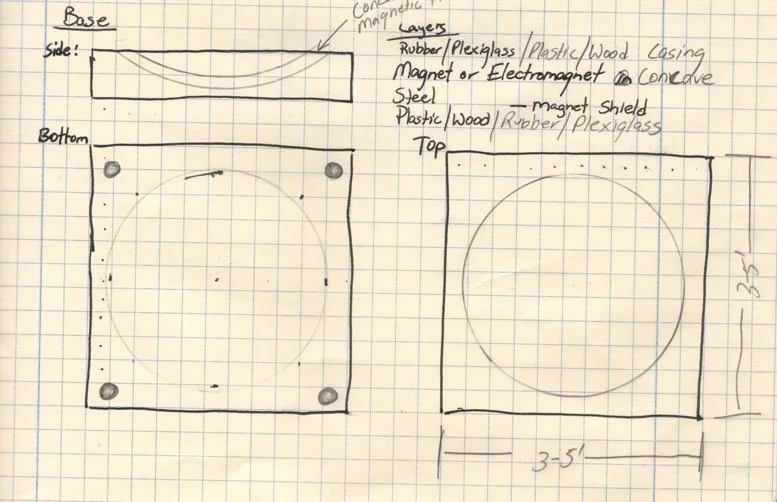 Base
Side:
magnetic
Layers
Rubber/Plexiglass/Plastic/Wood Casing
Magnet or Electromagnet Concave
Steel
— magnet Shield
Plastic/Wood/Rubber/Plexiglass
Bottom
Top
3-5'
3-5'